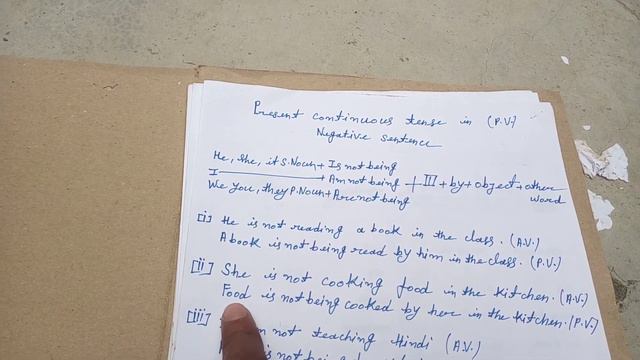 Present continuous tense in (P.V.)
Negative sentence
He, She, it S.Noun + Is not being
I + Am not being + III + by + object + other word
We You, they P.Noun + Are not being
[i] He is not reading a book in the class. (A.V.)
A book is not being read by him in the class. (P.V.)
[ii] She is not cooking food in the kitchen. (A.V.)
Food is not being cooked by her in the kitchen. (P.V.)
[iii] not teaching Hindi (A.V.)
is not being